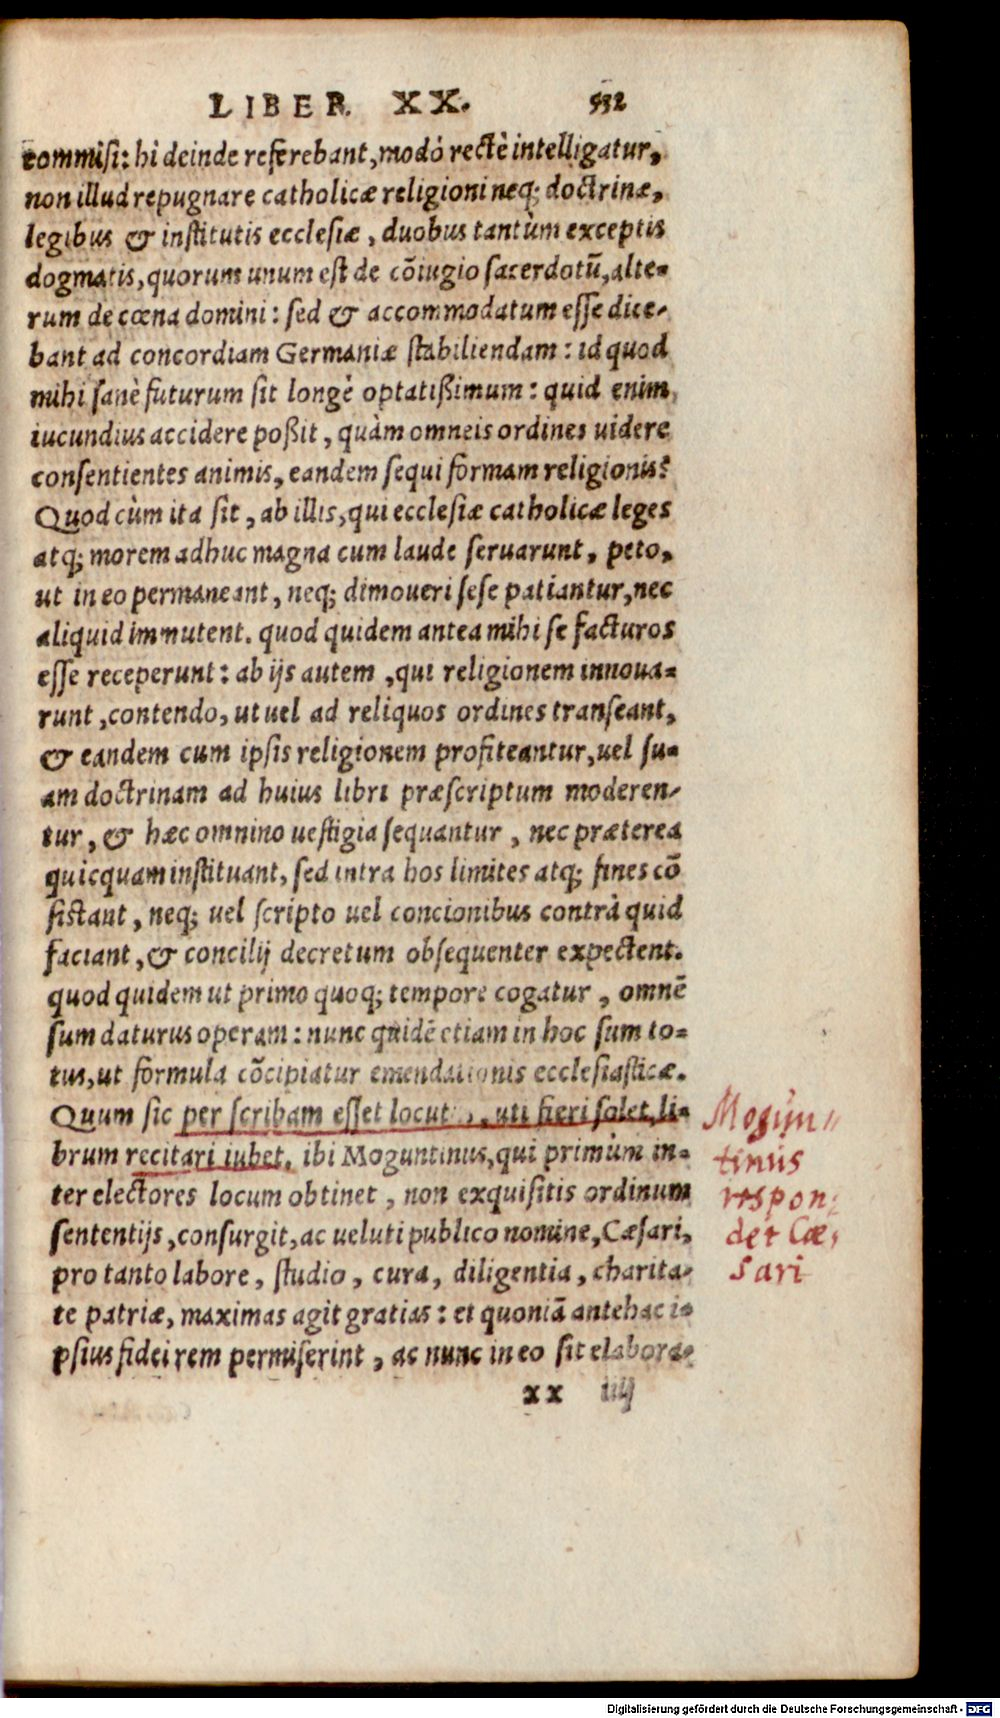 LIBER XX. 532
commisi: hi deinde referebant, modò rectè intelligatur,
non illud repugnare catholicæ religioni neq; doctrinæ,
legibus & institutis ecclesiæ, duobus tantùm exceptis
dogmatis, quorum unum est de cõiugio sacerdotũ, alte=
rum de cœna domini: sed & accommodatum esse dice-
bant ad concordiam Germaniæ stabiliendam: id quod
mihi sanè futurum sit longè optatißimum: quid enim
iucundius accidere poßit, quàm omneis ordines uidere
consentientes animis, eandem sequi formam religionis?
Quod cùm ita sit, ab illis, qui ecclesiæ catholicæ leges
atq; morem adhuc magna cum laude seruarunt, peto,
ut in eo permaneant, neq; dimoueri sese patiantur, nec
aliquid immutent. quod quidem antea mihi se facturos
esse receperunt: ab ijs autem, qui religionem innoua=
runt, contendo, ut uel ad reliquos ordines transeant,
& eandem cum ipsis religionem profiteantur, uel su=
am doctrinam ad huius libri præscriptum moderen-
tur, & hæc omnino uestigia sequantur, nec præterea
quicquam instituant, sed intra hos limites atq; fines cõ
sistant, neq; uel scripto uel concionibus contrà quid
faciant, & concilij decretum obsequenter expectent.
quod quidem ut primo quoq; tempore cogatur, omnẽ
sum daturus operam: nunc quidẽ etiam in hoc sum to=
tus, ut formula cõcipiatur emendationis ecclesiasticæ.
Quum sic per scribam esset locutus, uti fieri solet, li=
brum recitari iubet. ibi Moguntinus, qui primùm in=
ter electores locum obtinet, non exquisitis ordinum
sententijs, consurgit, ac ueluti publico nomine, Cæsari,
pro tanto labore, studio, cura, diligentia, charita-
te patriæ, maximas agit gratias: et quoniã antehac i=
psius fidei rem permiserint, ac nunc in eo sit elabora-
xx iiij
Mogun=
tinus
respon=
det Cæ=
sari
Digitalisierung gefördert durch die Deutsche Forschungsgemeinschaft - DFG